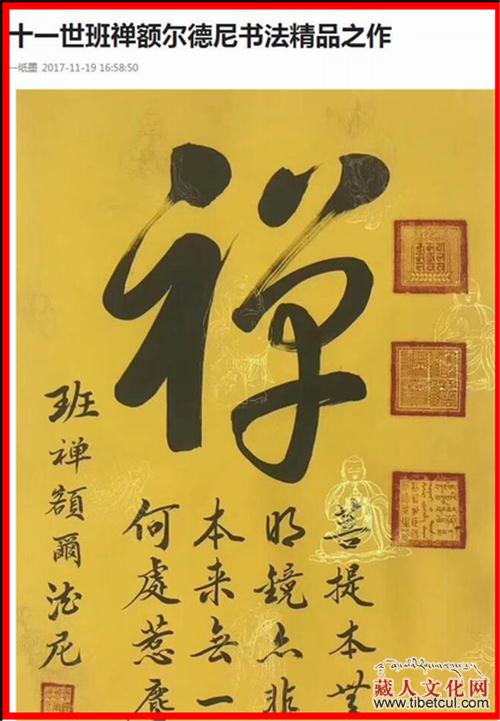 十一世班禅额尔德尼书法精品之作
一纸墨 2017-11-19 16:58:50
禅
菩提本
明镜亦非
本来无一
何處惹
班禅额爾德尼
藏人文化网
www.tibetcul.com